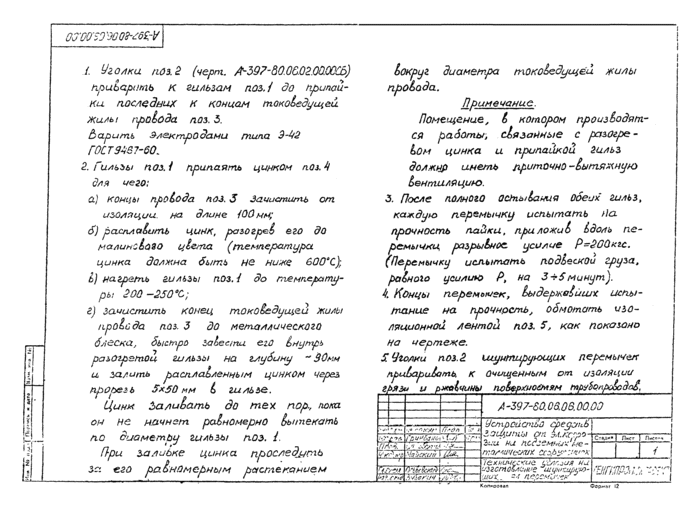 1. Уголки поз.2 (черт. А-397-80.06.02.00.00СБ)
приварить к гильзам поз.1 до припай-
ки последних к концам токоведущей
жилы провода поз.3.
Варить электродами типа Э-42
ГОСТ 9467-60.
2. Гильзы поз.1 припаять цинком поз.4
для чего:
а) концы провода поз.3 зачистить от
изоляции на длине 100 мм;
б) расплавить цинк, разогрев его до
малинового цвета (температура
цинка должна быть не ниже 600°С);
в) нагреть гильзы поз.1 до температу-
ры 200–250°С;
г) зачистить конец токоведущей жилы
провода поз.3 до металлического
блеска, быстро завести его внутрь
разогретой гильзы на глубину ~90мм
и залить расплавленным цинком через
прорезь 5×50 мм в гильзе.
Цинк заливать до тех пор, пока
он не начнет равномерно вытекать
по диаметру гильзы поз.1.
При заливке цинка проследить
за его равномерным растеканием
вокруг диаметра токоведущей жилы
провода.
Примечание.
Помещение, в котором производят-
ся работы, связанные с разогре-
вом цинка и припайкой гильз
должно иметь приточно-вытяжную
вентиляцию.
3. После полного остывания обеих гильз,
каждую перемычку испытать на
прочность пайки, приложив вдоль пе-
ремычки разрывное усилие Р=200кгс.
(Перемычку испытать подвеской груза,
равного усилию Р, на 3÷5 минут).
4. Концы перемычек, выдержавших испы-
тание на прочность, обмотать изо-
ляционной лентой поз.5, как показано
на чертеже.
5. Уголки поз.2 шунтирующих перемычек
приваривать к очищенным от изоляции
грязи и ржавчины поверхностям трубопроводов,
А-397-80.06.06.00.00
Устройство средств
защиты от электро-
на подземных ме-
таллических сооружениях
Стадия Лист Листов
1
Технические условия на
изготовление шунтирую-
щих перемычек
Копировал Формат 12